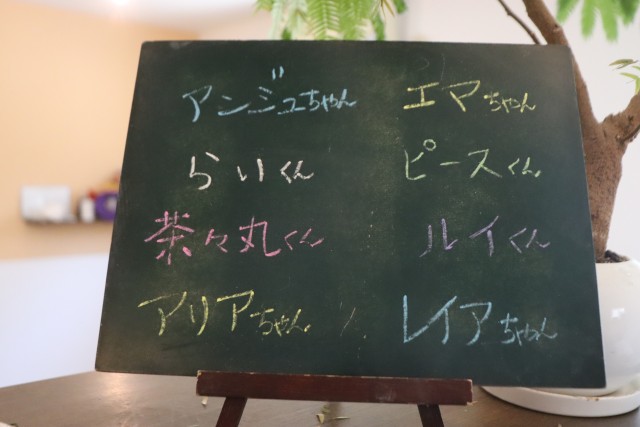 アンジュちゃん
エマちゃん
らいくん
ピースくん
茶々丸くん
ルイくん
アリアちゃん
レイアちゃん